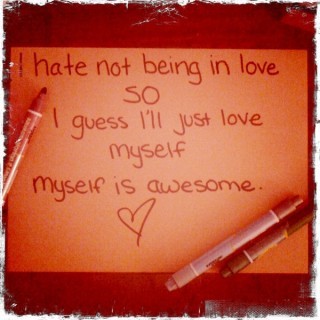 I hate not being in love
SO
I guess I'll just love
myself
myself is awesome.